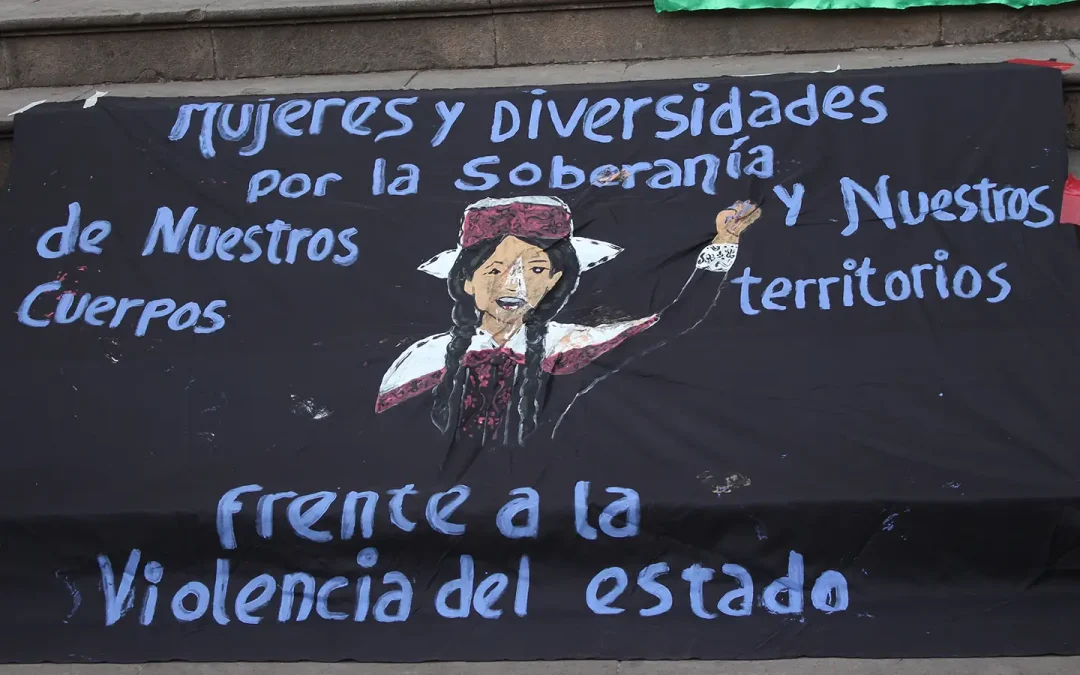 Mujeres y Diversidades
por la Soberanía
de Nuestros
Cuerpos
y Nuestros
territorios
Frente a la
Violencia del estado